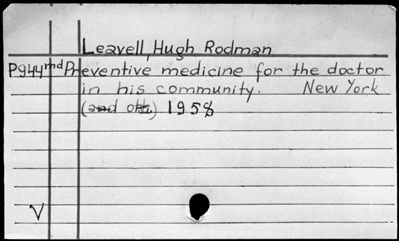 Leavell, Hugh Rodman
P944md Preventive medicine for the doctor
in his community. New York
(and oth.) 1958
V